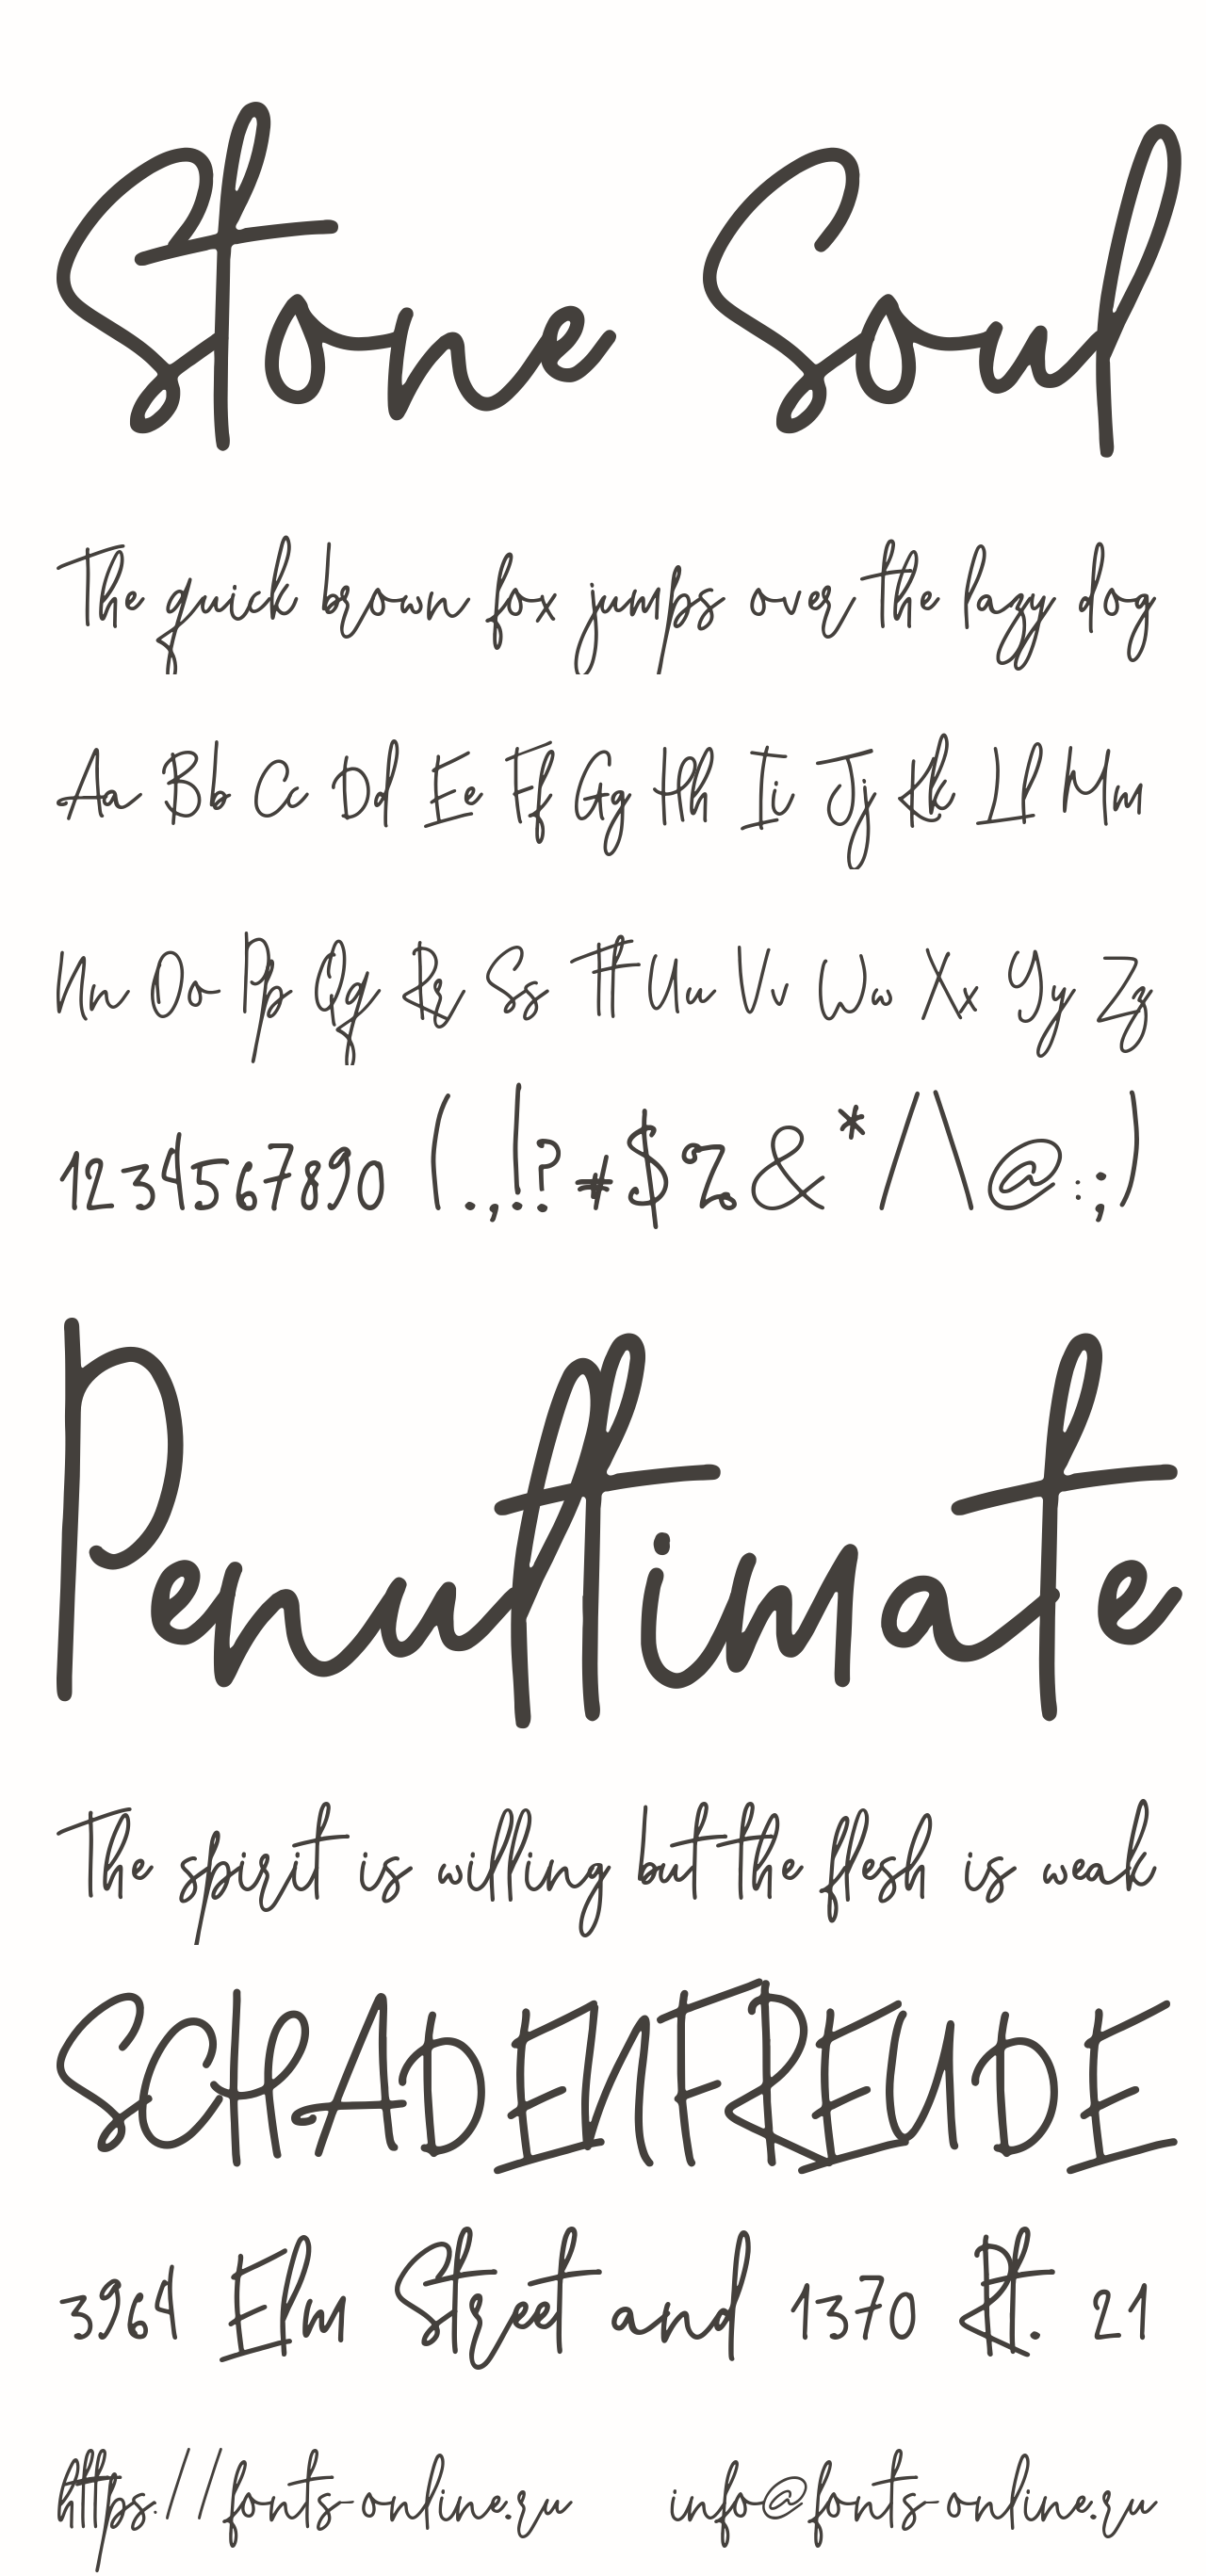 Stone Soul
The quick brown fox jumps over the lazy dog
Aa Bb Cc Dd Ee Ff Gg Hh Ii Jj Kk Ll Mm
Nn Oo Pp Qq Rr Ss Tt Uu Vv Ww Xx Yy Zz
1234567890 (.,!?#$%&*/\@:;)
Penultimate
The spirit is willing but the flesh is weak
SCHADENFREUDE
3964 Elm Street and 1370 Rt. 21
https://fonts-online.ru info@fonts-online.ru